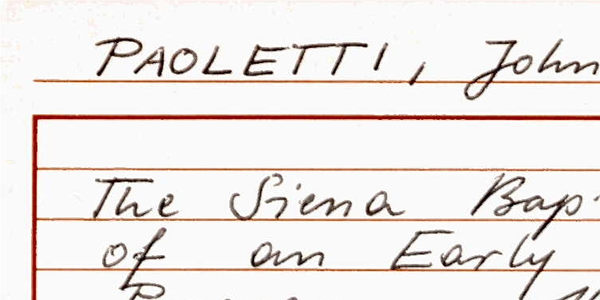 PAOLETTI, John
The Siena Bap
of an Early